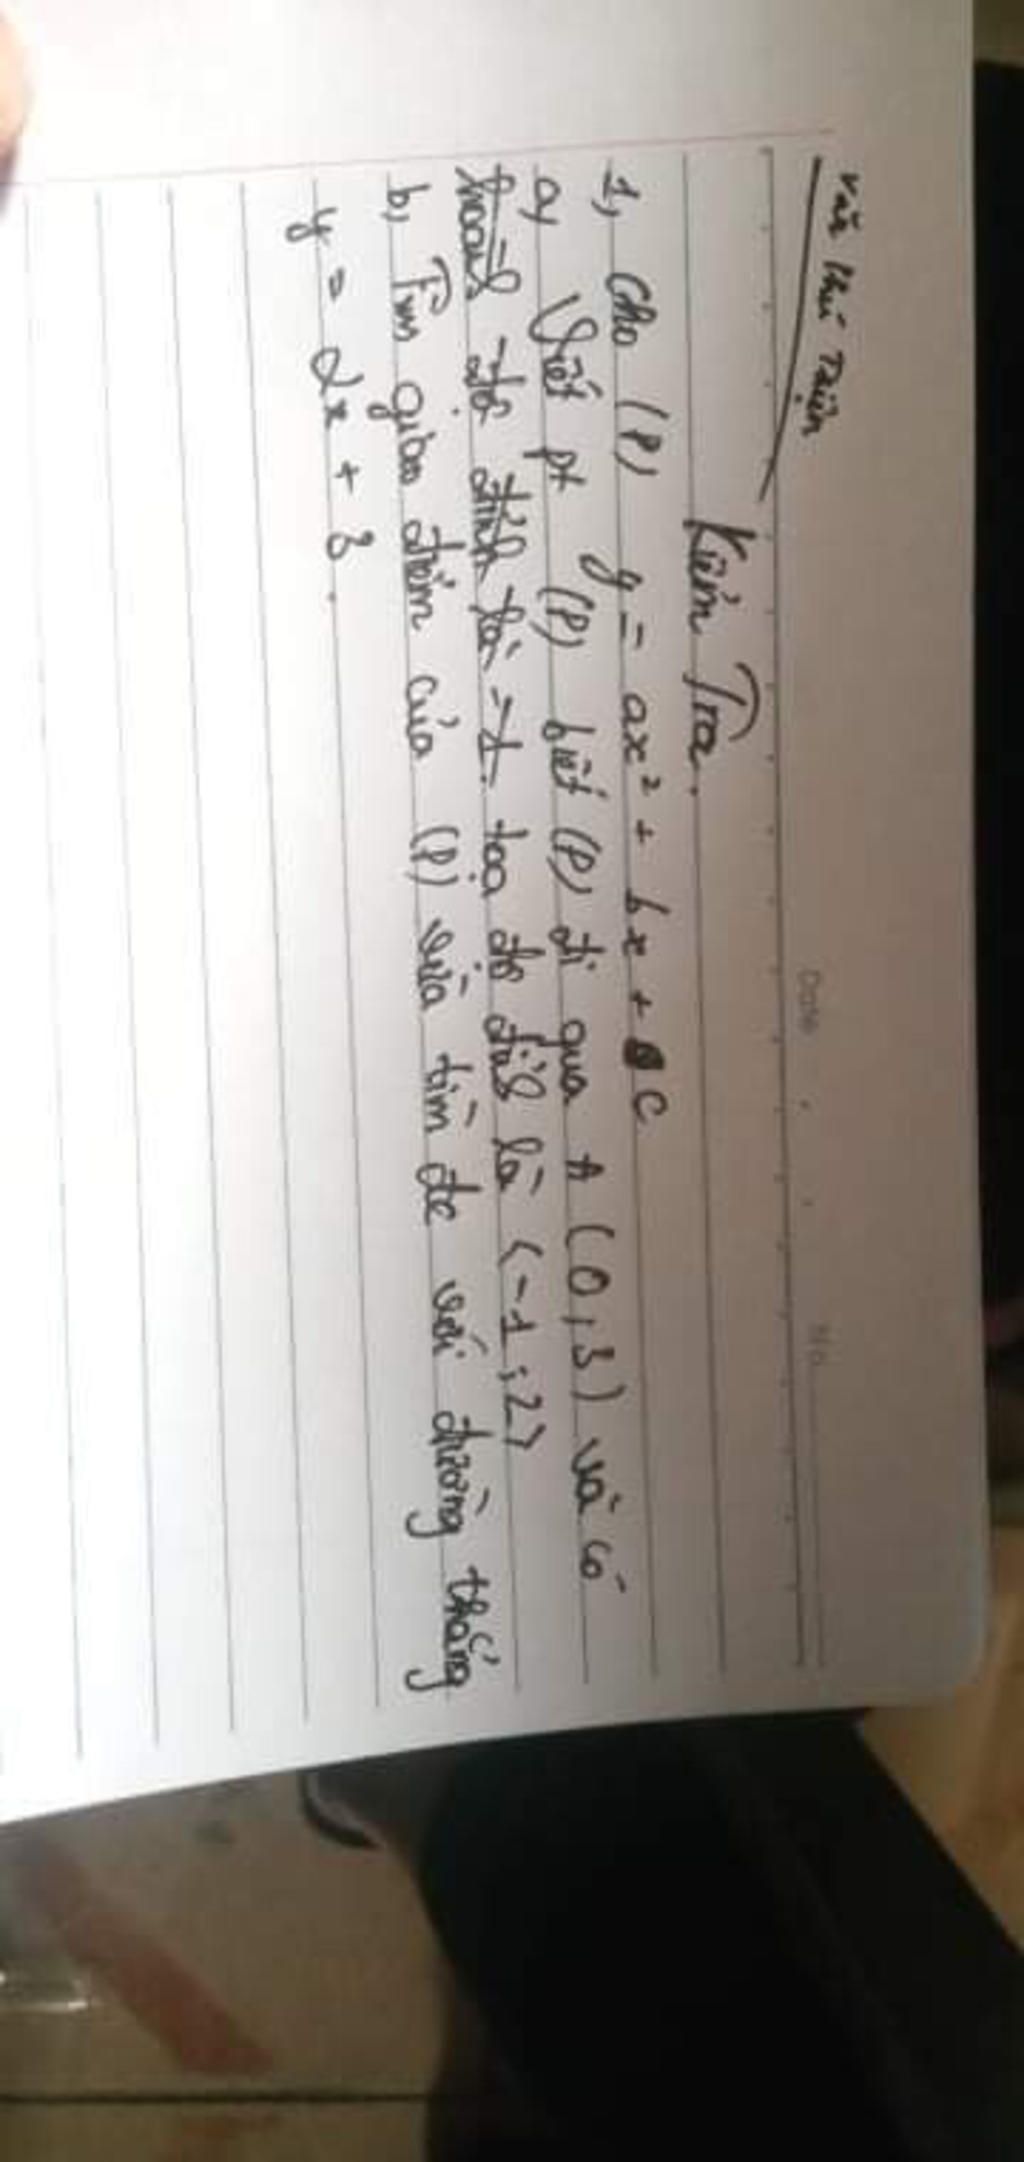 Date No
Kiểm Tra.
1, Cho (P) y = ax² + bx + c
a, Viết pt (P) biết (P) đi qua A (0,3) và có
hoành độ đỉnh là -1. tọa độ đỉnh là (-1;2)
b, Tìm giao điểm của (P) vừa tìm đc với đường thẳng
y = 2x + 3.